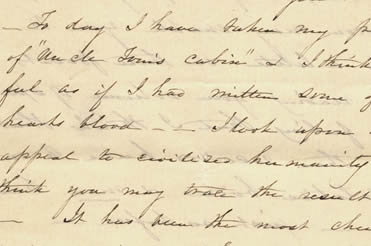 - To day I have taken my p
of "Uncle Tom's cabin" & I think
ful as if I had written some of
hearts blood - - I look upon
appeal to civilized humanity
think you may trace the result
- It has been the most che